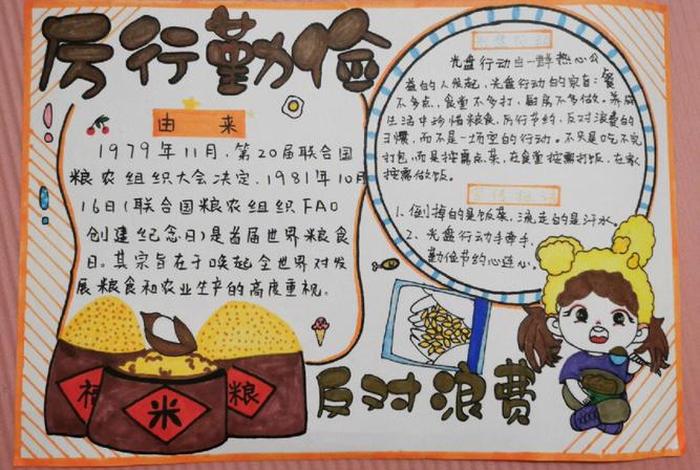 厉行勤俭
由来
1979年11月,第20届联合国
粮农组织大会决定,1981年10月
16日(联合国粮农组织FAO
创建纪念日)是首届世界粮食
日。其宗旨在于唤起全世界对发
展粮食和农业生产的高度重视。
光盘行动由一群热心公
益的人发起,光盘行动的宗旨:餐
不多点,食堂不多打,厨房不多做。养成
生活中珍惜粮食,厉行节约,反对浪费的
习惯,而不是一场空的行动。不只是吃不完
打包,而是按需点菜,在食堂按需打饭,在家
按需做饭。
宣传标语
1、倒掉的是饭菜,流走的是汗水。
2、光盘行动手牵手,
勤俭节约心连心。
福
米
粮
反对浪费